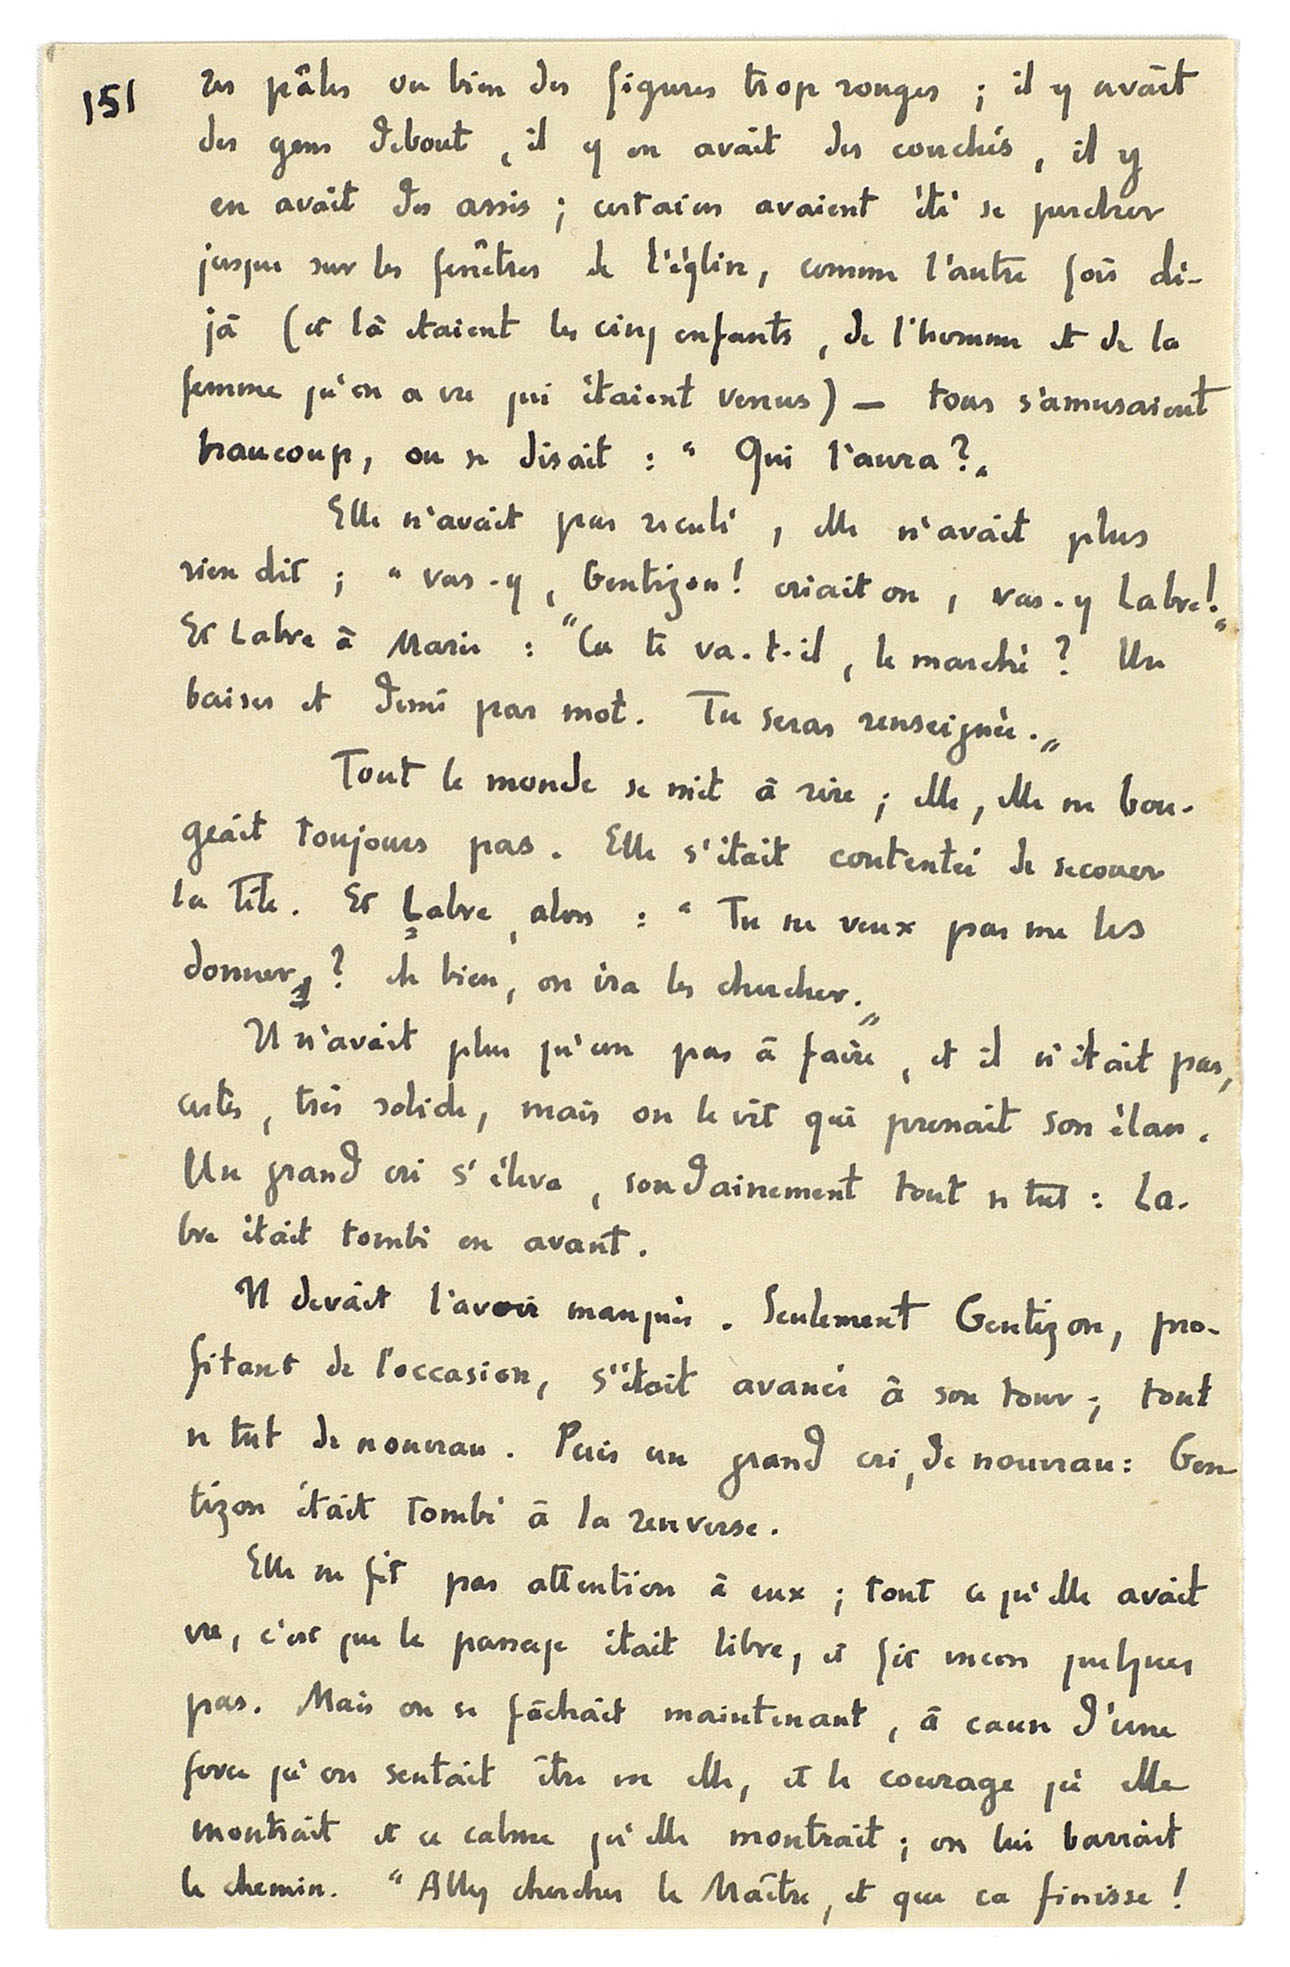 151
res pâles ou bien des figures trop rouges ; il y avait
des gens debout, il y en avait des couchés, il y
en avait des assis ; certains avaient été se percher
jusque sur les fenêtres de l'église, comme l'autre fois dé-
jà (et là étaient les cinq enfants, de l'homme et de la
femme qu'on a vu qui étaient venus) — tous s'amusaient
beaucoup, on se disait : " Qui l'aura ? "
Elle n'avait pas reculé, elle n'avait plus
rien dit ; " vas-y, Gentizon ! criait on, vas-y Labre ! "
Et Labre à Marie : " Ca te va-t-il, le marché ? Un
baiser et demi par mot. Tu seras renseignée. "
Tout le monde se mit à rire ; elle, elle ne bou-
geait toujours pas. Elle s'était contentée de secouer
la tête. Et Labre, alors : " Tu ne veux pas me les
donner ? eh bien, on ira les chercher. "
Il n'avait plus qu'un pas à faire, et il n'était pas,
certes, très solide, mais on le vit qui prenait son élan.
Un grand cri s'éleva, soudainement tout se tut : La-
bre était tombé en avant.
Il devait l'avoir manquée. Seulement Gentizon, pro-
fitant de l'occasion, s'était avancé à son tour ; tout
se tut de nouveau. Puis un grand cri, de nouveau : Gen-
tizon était tombé à la renverse.
Elle ne fit pas attention à eux ; tout ce qu'elle avait
vu, c'est que le passage était libre, et fit encore quelques
pas. Mais on se fâchait maintenant, à cause d'une
force qu'on sentait être en elle, et le courage qu'elle
montrait et ce calme qu'elle montrait ; on lui barrait
le chemin. " Allez chercher le Maître, et que ca finisse !